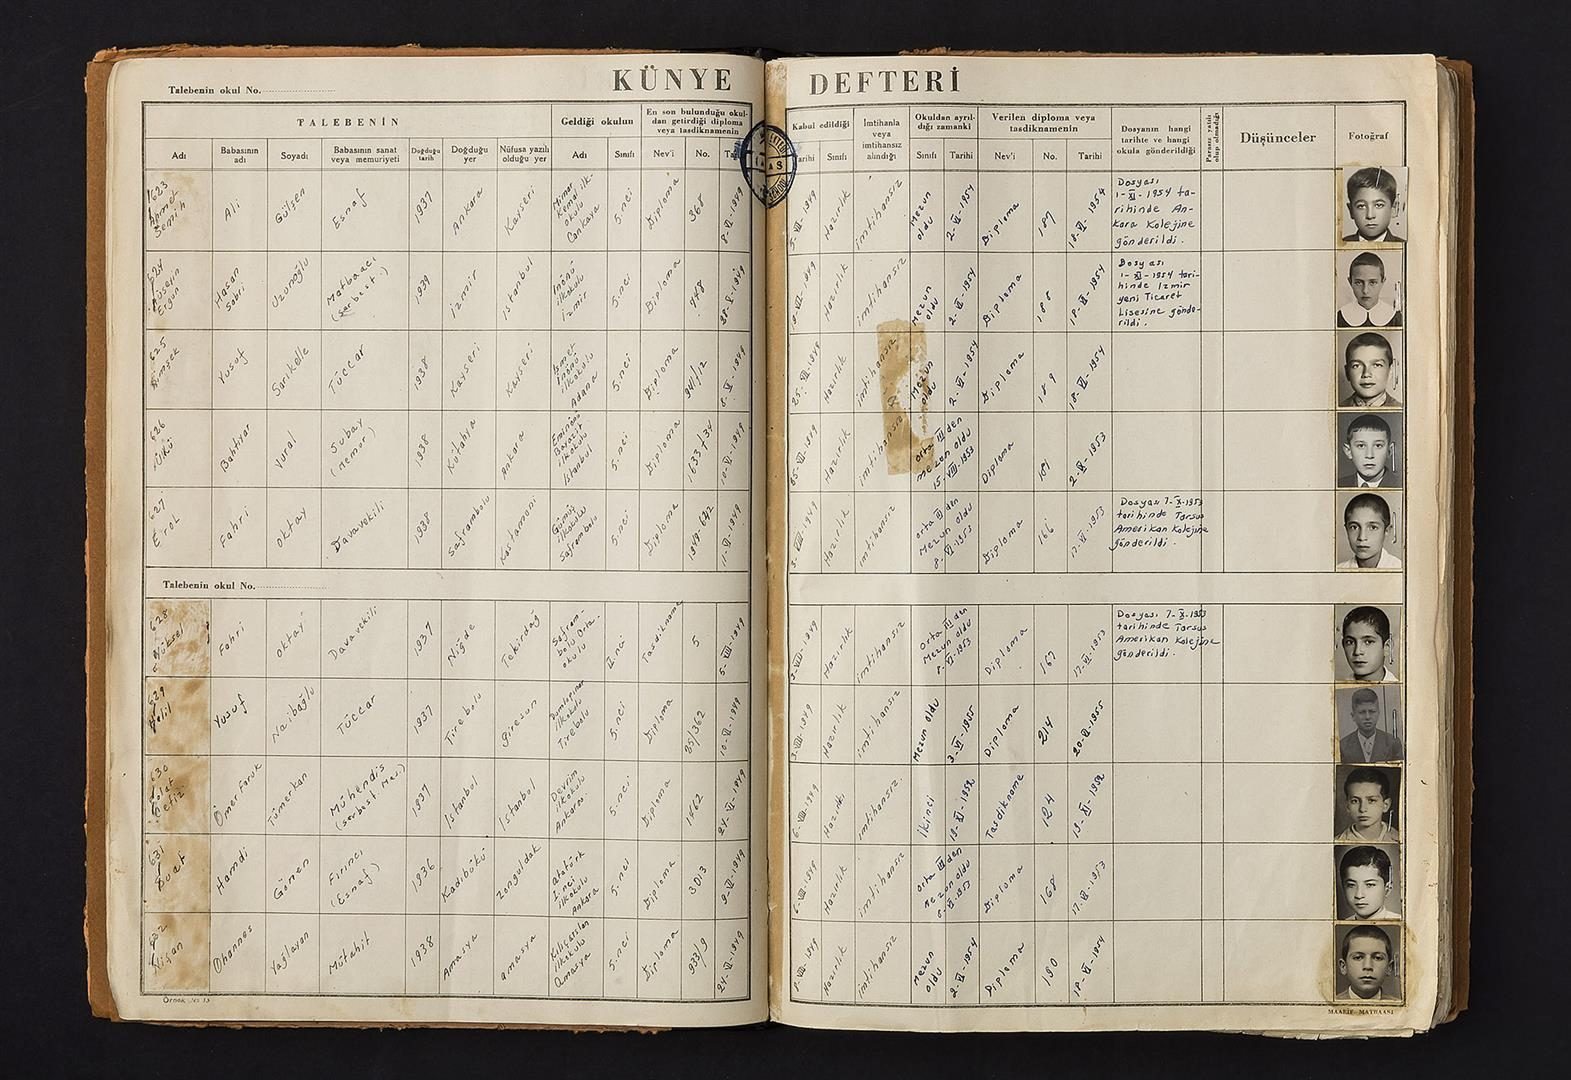 KÜNYE DEFTERİ
Talebenin okul No.
TALEBENİN
Geldiği okulun
En son bulunduğu okul-
dan getirdiği diploma
veya tasdiknamenin
Kabul edildiği
İmtihanla
veya
imtihansız
alındığı
Okuldan ayrıl-
dığı zamanki
Verilen diploma veya
tasdiknamenin
Dosyanın hangi
tarihte ve hangi
okula gönderildiği
Parasız yatılı
olup olmadığı
Düşünceler
Fotoğraf
Adı
Babasının
adı
Soyadı
Babasının sanat
veya memuriyeti
Doğduğu
tarih
Doğduğu
yer
Nüfusa yazılı
olduğu yer
Adı
Sınıfı
Nev'i
No.
Tarihi
Sınıfı
Sınıfı
Tarihi
Nev'i
No.
Tarihi
1623
Ahmet
Semih
Ali
Gülşen
Esnaf
1937
Ankara
Kayseri
Mimar
Kemal ilk-
okulu
Çankaya
5.nci
Diploma
368
8-VI-1949
Hazırlık
imtihansız
Mezun
oldu
2-VI-1954
Diploma
187
18-VI-1954
Dosyası
1-XI-1954 ta-
rihinde An-
kara Kolejine
gönderildi.
Ergun
Hasan
Sabri
Uzunoğlu
Matbaacı
(serbest)
1939
İzmir
İstanbul
İnönü
ilkokulu
İzmir
5.nci
Diploma
748
Hazırlık
imtihansız
Mezun
oldu
2-VI-1954
Diploma
188
18-VI-1954
Dosyası
1-XI-1954 tari-
hinde İzmir
yeni Ticaret
Lisesine gönde-
rildi.
625
Şimşek
Yusuf
Sarıkelle
Tüccar
1938
Kayseri
Kayseri
İsmet
İnönü
ilkokulu
Adana
5.nci
Diploma
941/12
Hazırlık
imtihansız
Mezun
oldu
2-VI-1954
Diploma
189
18-VI-1954
626
Bahtiyar
Vural
Subay
(Memur)
1938
Kütahya
Ankara
Eminönü
Bayazıt
ilkokulu
İstanbul
5.nci
Diploma
1633/34
10-VI-1949
Hazırlık
imtihansız
Orta III den
mezun oldu
15-VIII-1953
Diploma
627
Erol
Fahri
Oktay
Davavekili
1938
Safranbolu
Kastamoni
Gümüş
ilkokulu
Safranbolu
5.nci
Diploma
11-VI-1949
Hazırlık
imtihansız
Orta III den
Mezun oldu
8-VI-1953
Diploma
166
17-VI-1953
Dosyası 7-X-1953
tarihinde Tarsus
Amerikan Kolejine
gönderildi.
Talebenin okul No.
628
Yüksel
Fahri
Oktay
Davavekili
1937
Niğde
Tekirdağ
Safran-
bolu Orta-
okulu
II.nci
Tasdikname
5
5-VIII-1949
Hazırlık
imtihansız
Orta III den
Mezun oldu
8-VI-1953
Diploma
167
17-VI-1953
Dosyası 7-X-1953
tarihinde Tarsus
Amerikan Kolejine
gönderildi.
629
Halil
Yusuf
Naiboğlu
Tüccar
1937
Tirebolu
Giresun
Dumlupınar
ilkokulu
Tirebolu
5.nci
Diploma
85/362
10-VI-1949
Hazırlık
imtihansız
Mezun oldu
3-VI-1955
Diploma
214
20-VI-1955
630
Polat
Ömer Faruk
Tümerkan
Mühendis
(serbest Mes.)
1937
İstanbul
İstanbul
Devrim
ilkokulu
Ankara
5.nci
Diploma
1462
24-VI-1949
Hazırlık
imtihansız.
İkinci
13-XI-1952
Tasdikname
124
13-XI-1952
631
Suat
Hamdi
Gömen
Fırıncı
(Esnaf)
1936
Kadıbükü
Zonguldak
Atatürk
I.inci
ilkokulu
Ankara
5.nci
Diploma
3013
9-VI-1949
Hazırlık
imtihansız
Orta III den
Mezun oldu
8-VI-1953
Diploma
168
17-VI-1953
632
Nişan
Ohannes
Yağlayan
Müteahhit
1938
Amasya
Amasya
Kılıçarslan
ilkokulu
Amasya
5.nci
Diploma
933/9
24-VI-1949
Hazırlık
imtihansız
Mezun
oldu
2-VI-1954
Diploma
190
18-VI-1954
MAARİF MATBAASI